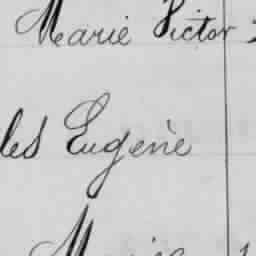 Marie Victor
les Eugène
Marie